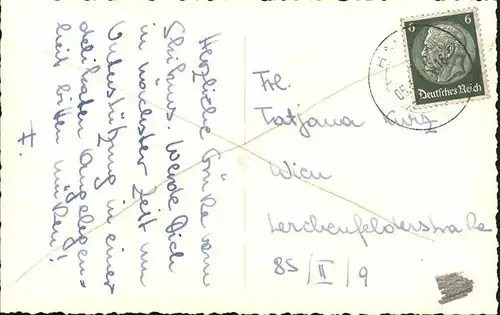 Herzliche Grüße vom
Skikurs. Werde Dich
in nächster Zeit um
Unterstützung in einer
delikaten Angelegen-
heit bitten müssen!
Frl.
Tatjana Kurz
Wien
Lerchenfelderstraße
85/II/9
6 6
Deutsches Reich